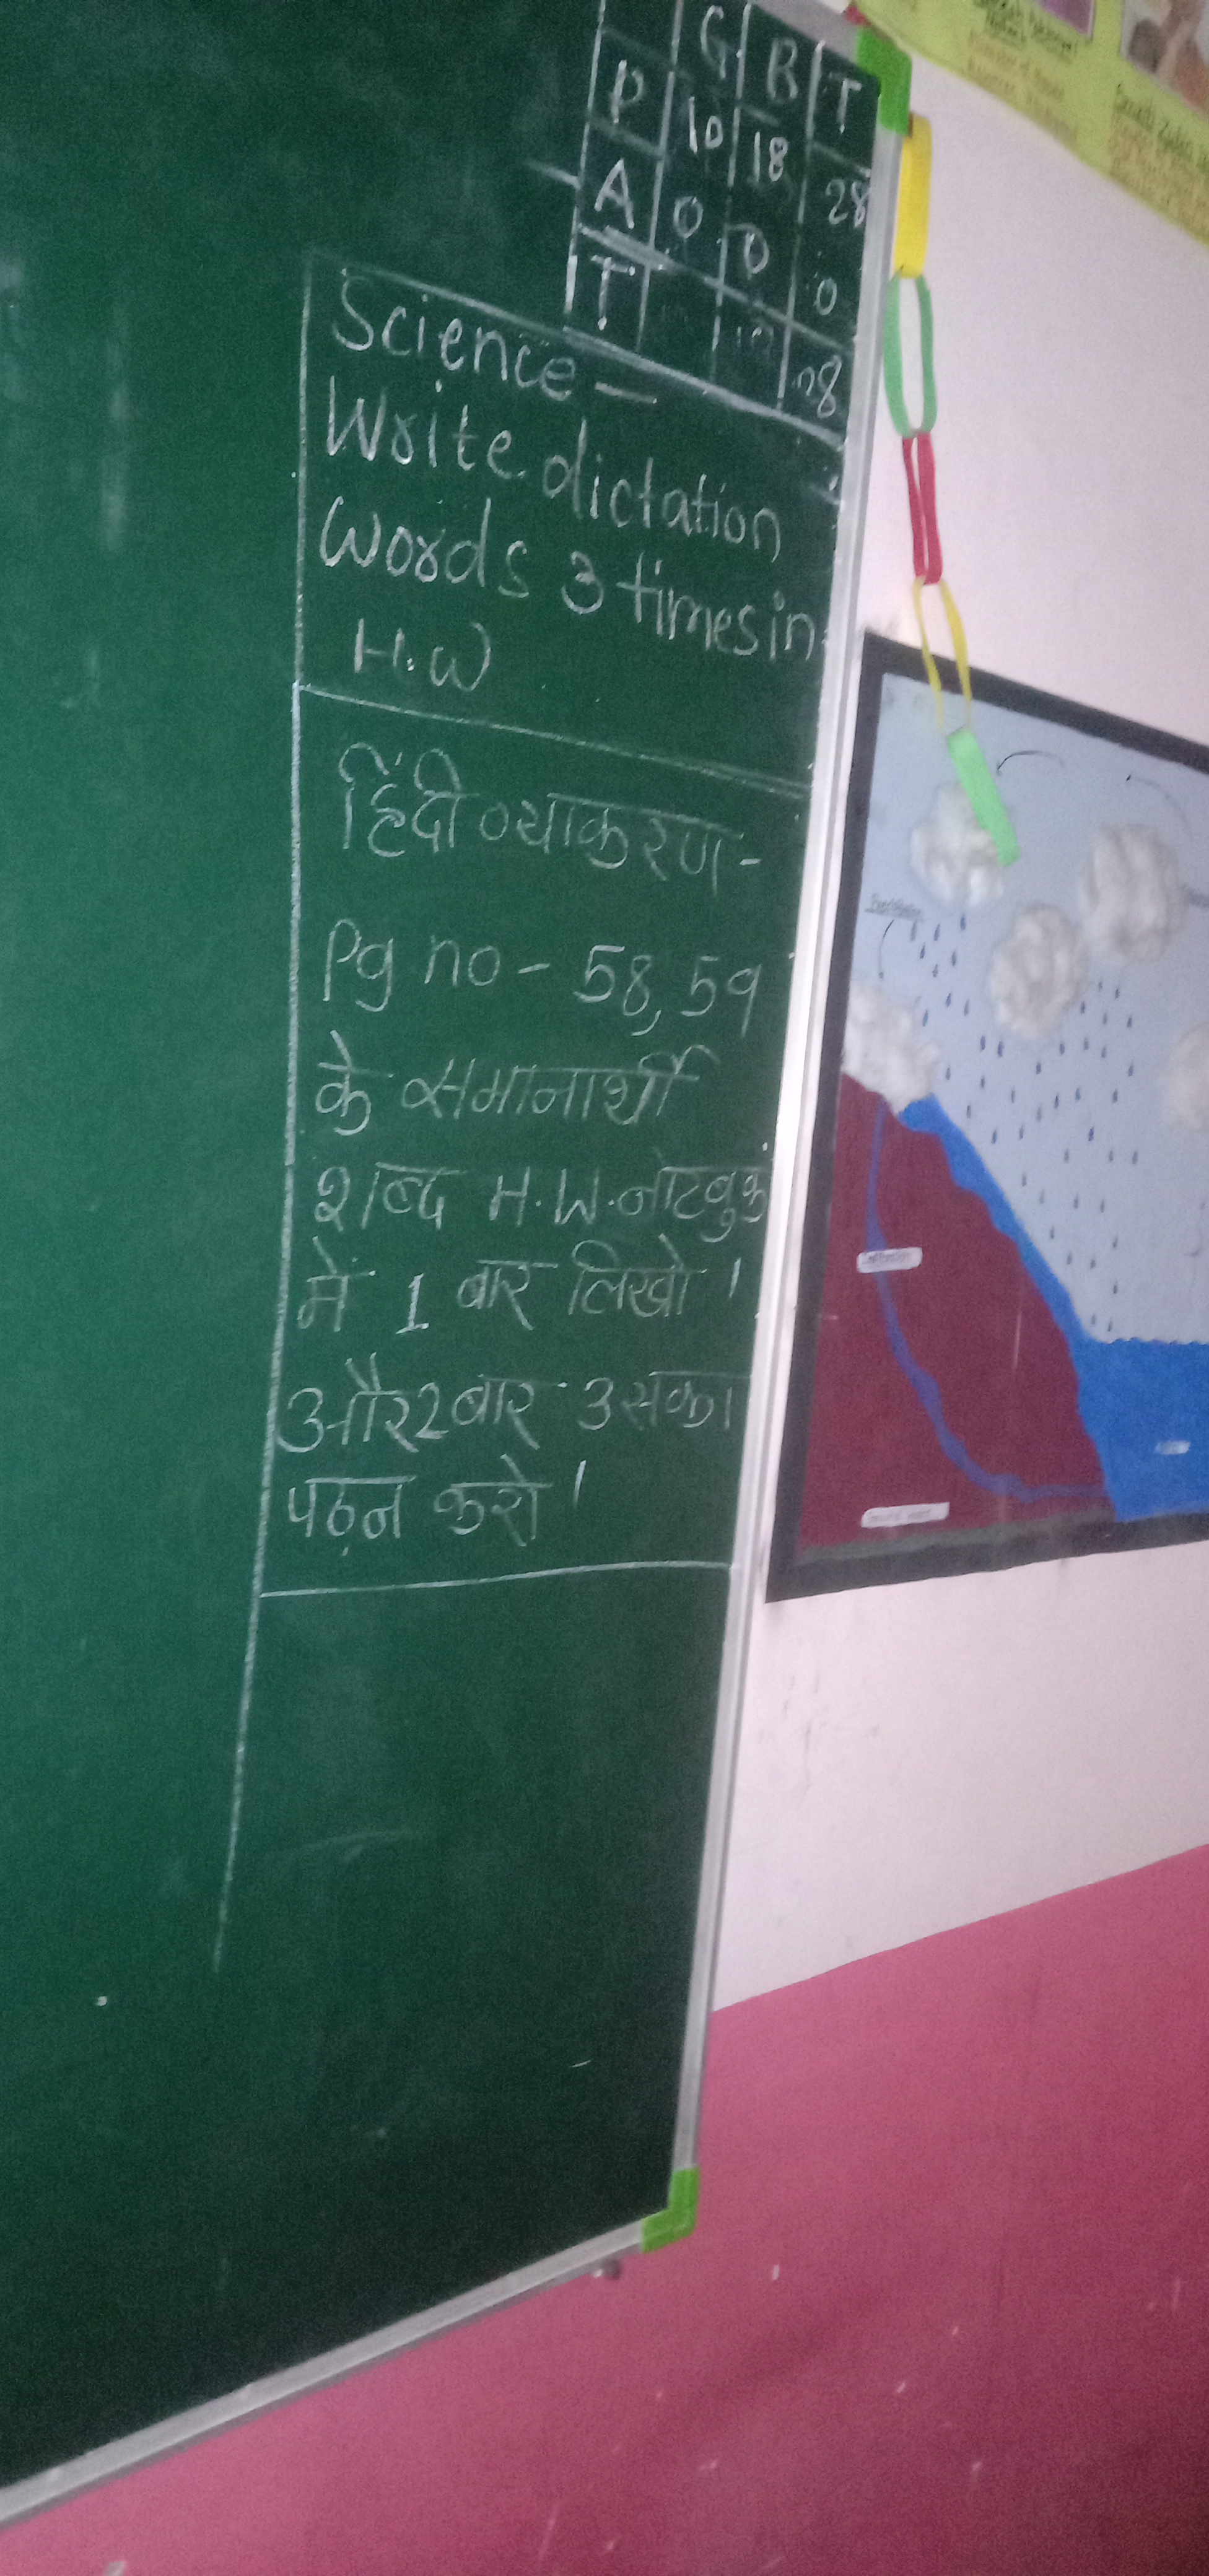 G B T
P 10 18 28
A 0 0 0
T 28
Science —
Write dictation
words 3 times in
H.W
हिंदी व्याकरण -
Pg no - 58, 59
के समानार्थी
शब्द H.W. नोटबुक
में 1 बार लिखो ।
और 2 बार उसका
पठ़न करो ।